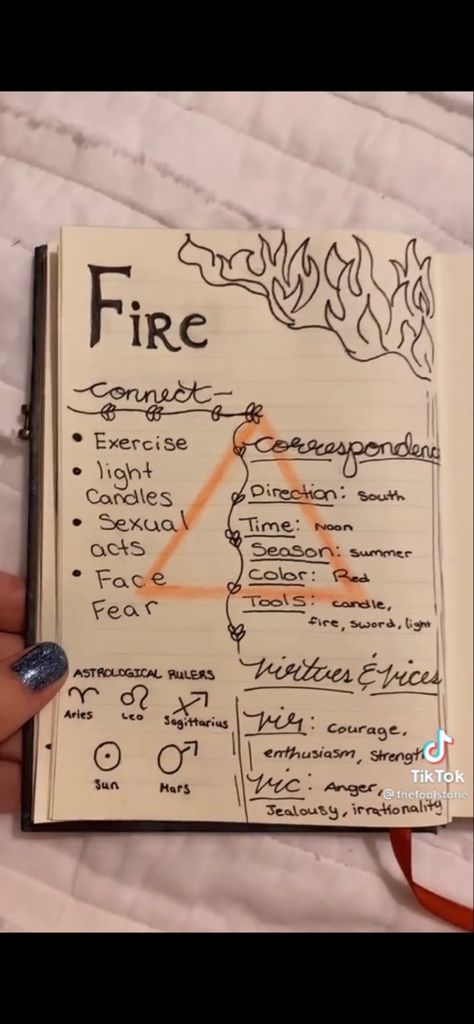 Fire
connect-
• Exercise
• light
Candles
• Sexual
acts
• Face
Fear
Correspondenc
Direction: South
Time: Noon
Season: summer
Color: Red
Tools: candle,
fire, sword, light
ASTROLOGICAL RULERS
Aries
Leo
Sagittarius
Sun
Mars
virtues & vices
vir: courage,
enthusiasm, strengt
vic: Anger,
Jealousy, irrationality
TikTok
@thefoolstone